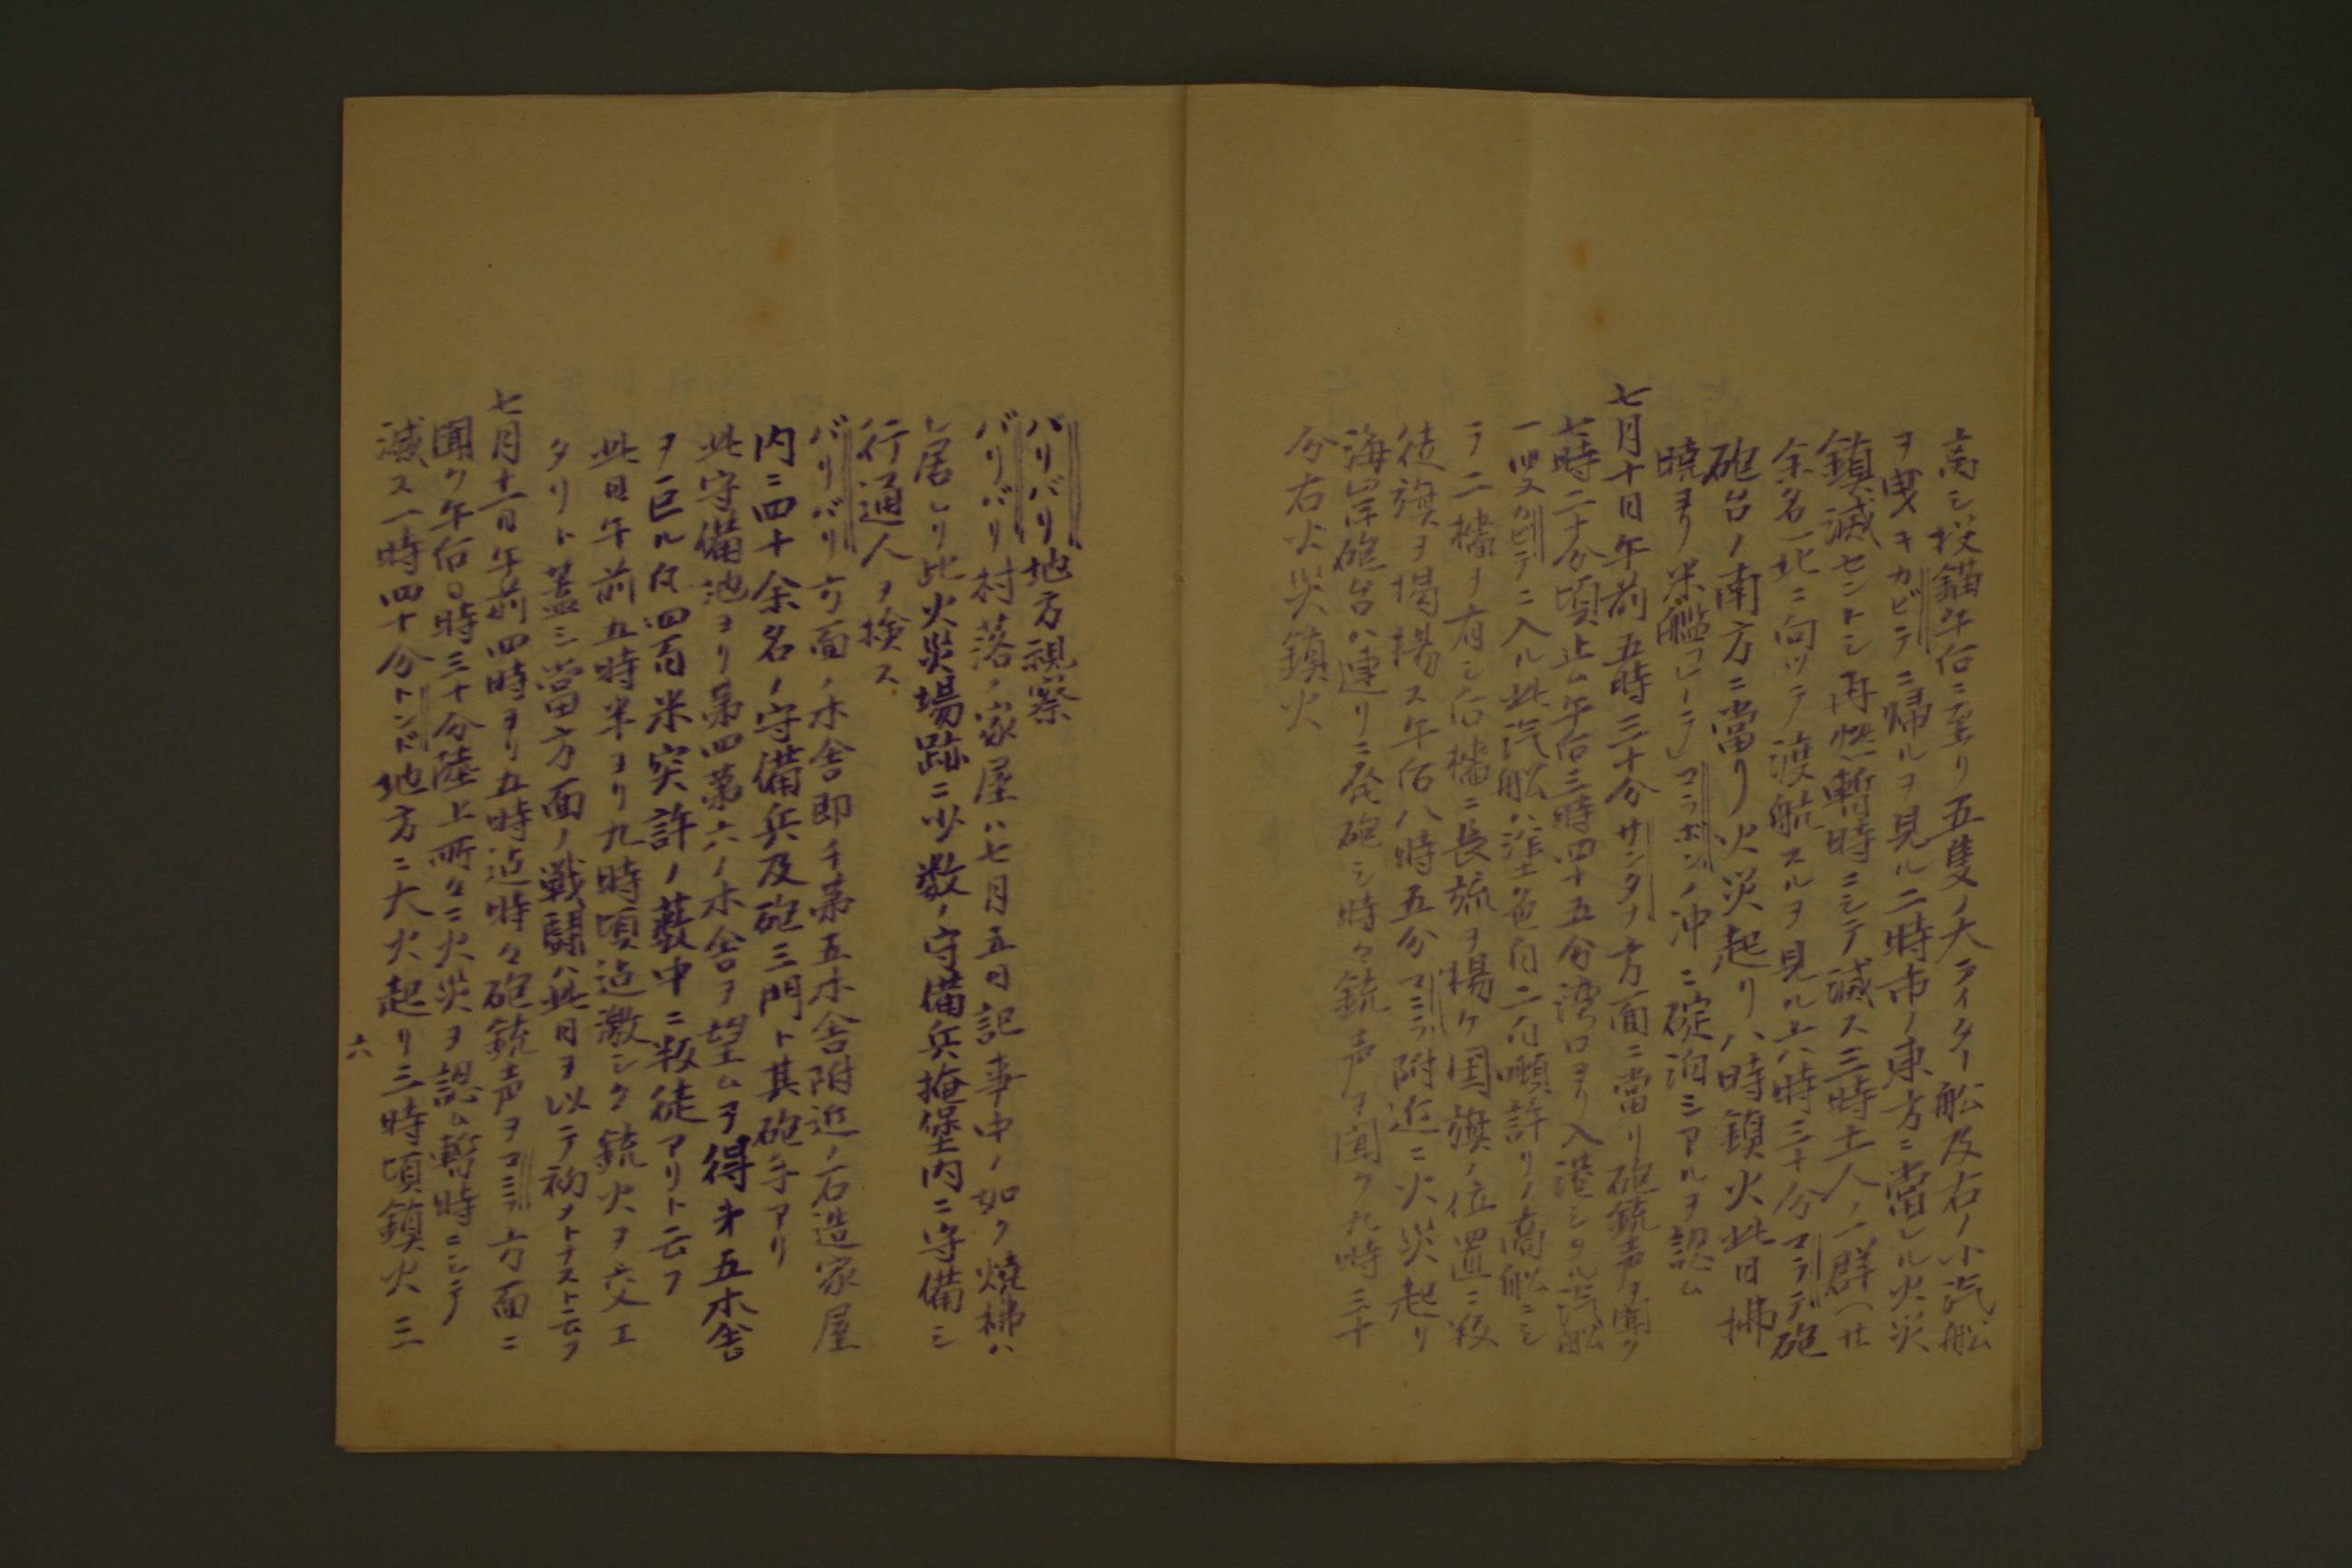 高シ投錨午后ニ至リ五隻ノ大ライター船及右ノ小汽船
ヲ曳キカビテニ帰ルヲ見ル二時市ノ東方ニ當レル火災
鎮滅セントシ再燃暫時ニシテ滅ス三時土人ノ一群(廿
余名)北ニ向ツテ渡航スルヲ見ル上八時三十分マラテ砲
砲台ノ南方ニ當リ火災起リ八時鎮火此日拂
暁ヨリ米艦「コレーラ」マラボンノ沖ニ碇泊シアルヲ認ム
七月十日午前五時三十分サンタナ方面ニ當リ砲銃声ヲ聞ク
七時二十分頃止ム午后三時四十五分湾口ヨリ入港シタル汽船
一隻カビテニ入ル此汽船ハ塗色白二百噸許リノ商船ニシ
テ二檣ヲ有シ后檣ニ長旒ヲ楊ケ国旗ノ位置ニ叛
徒旗ヲ掲揚ス午后八時五分マニラ附近ニ火災起リ
海岸砲台ハ連リニ発砲シ時々銃声ヲ聞ク九時三十
分右火災鎮火
バリバリ地方視察
バリバリ村落ノ家屋ハ七月五日記事中ノ如ク燒拂ハ
レ居レリ此火災場跡ニ少数ノ守備兵掩堡内ニ守備シ
行通人ヲ検ス
バリバリ方面ノ木舎即チ第五木舎附近ノ石造家屋
内ニ四十余名ノ守備兵及砲三門ト其砲手アリ
此守備池ヨリ第四第六ノ木舎ヲ望ムヲ得第五木舎
ヲ巨ル仅四百米突許ノ藪中ニ叛徒アリト云フ
此日午前五時半ヨリ九時頃迠激シク銃火ヲ交エ
タリト蓋シ當方面ノ戦闘ハ此日ヲ以テ初メトナスト云フ
七月十一日午前四時ヨリ五時迠時々砲銃声ヲマニラ方面ニ
聞ク午后〇時三十分陸上所々ニ火災ヲ認ム暫時ニシテ
滅ス一時四十分トンド地方ニ大火起リ三時頃鎮火三
六